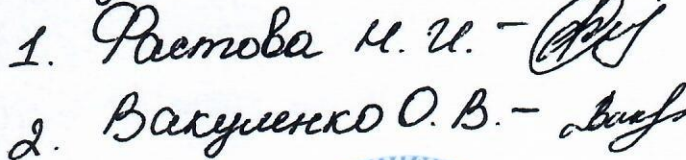 1. Фастова Н. И. -
2. Вакуленко О. В. - Вак